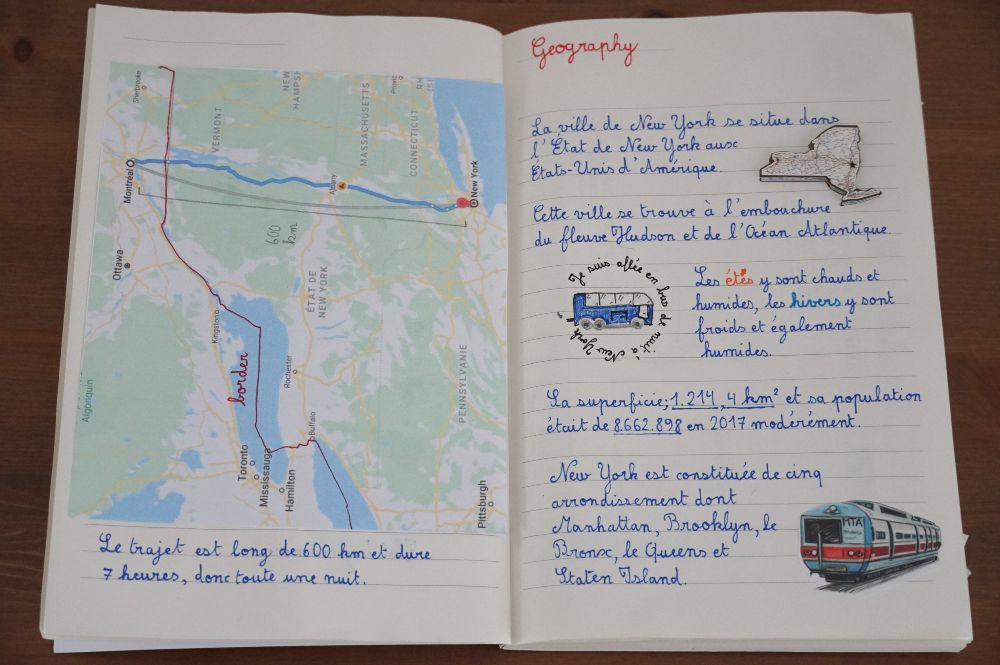 Sherbrooke
Montréal
Ottawa
VERMONT
NEW
HAMPSH
MASSACHUSETTS
CONNECTICUT
Albany
New York
600
km
ÉTAT DE
NEW YORK
Kingston
border
Rochester
PENNSYLVANIE
Algonquin
Buffalo
Toronto
Mississauga
Hamilton
Pittsburgh
Le trajet est long de 600 km et dure
7 heures, donc toute une nuit.
Geography
La ville de New York se situe dans
l'État de New York aux
États-Unis d'Amérique.
Cette ville se trouve à l'embouchure
du fleuve Hudson et de l'Océan Atlantique
Je suis allée en bus de nuit à New York
Les étés y sont chauds et
humides, les hivers y sont
froids et également
humides.
La superficie; 1.214,4 km² et sa population
était de 8.662.898 en 2017 modérément.
New York est constituée de cinq
arrondissement dont
Manhattan, Brooklyn, le
Bronx, le Queens et
Staten Island.
MTA